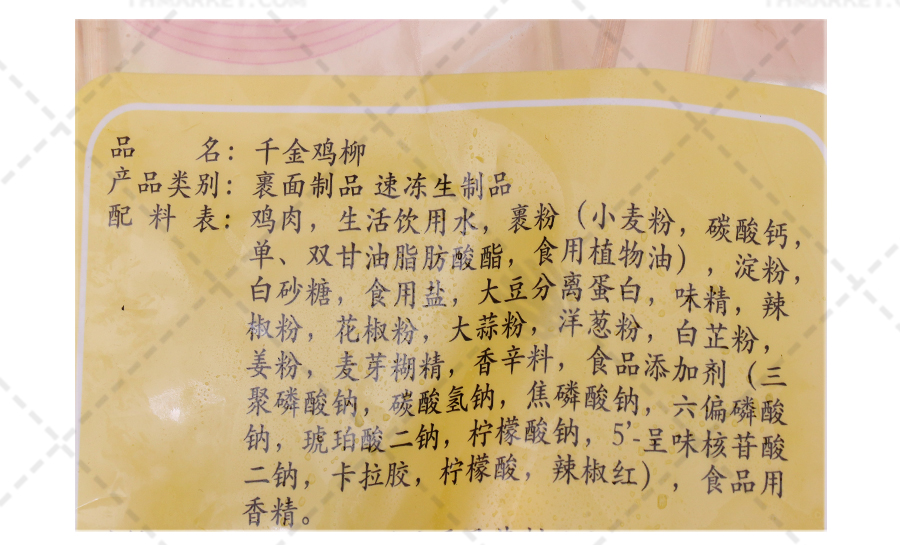 THMARKET.COM
THMARKET.COM
品 名：千金鸡柳
产品类别：裹面制品 速冻生制品
配 料 表：鸡肉，生活饮用水，裹粉（小麦粉，碳酸钙，
单、双甘油脂肪酸酯，食用植物油），淀粉，
白砂糖，食用盐，大豆分离蛋白，味精，辣
椒粉，花椒粉，大蒜粉，洋葱粉，白芷粉，
姜粉，麦芽糊精，香辛料，食品添加剂（三
聚磷酸钠，碳酸氢钠，焦磷酸钠，六偏磷酸
钠，琥珀酸二钠，柠檬酸钠，5’-呈味核苷酸
二钠，卡拉胶，柠檬酸，辣椒红），食品用
香精。